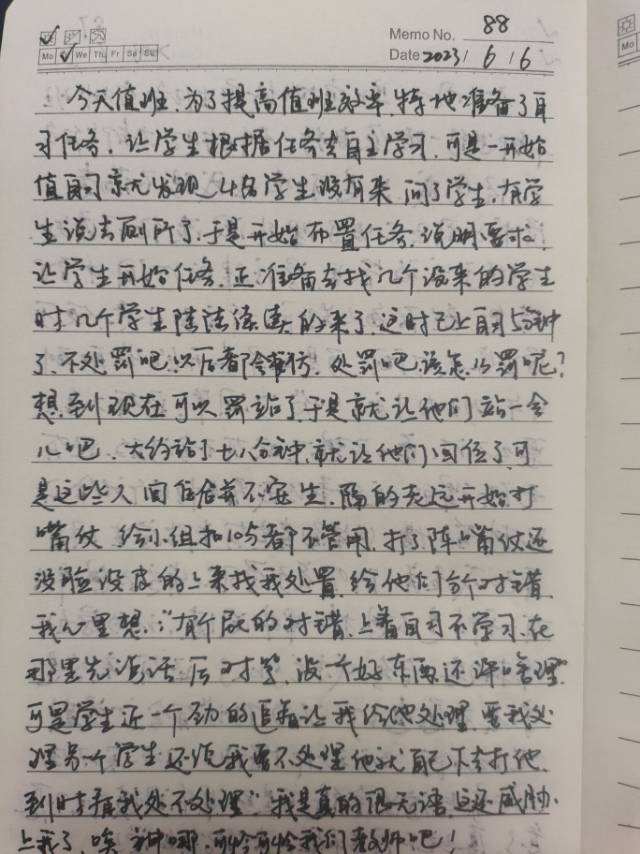 Memo No. 88
Mo Tu We Th Fr Sa Su
Date 2023/ 6 / 6
今天值班,为了提高值班效率,特地准备了自
习任务,让学生根据任务去自主学习,可是一开始
值自习就发现4名学生没有来,问了学生,有学
生说去厕所了,于是开始布置任务,说明要求,
让学生开始任务,正准备去找几个没来的学生
时,几个学生陆陆续续的来了,这时已上自习5分钟
了,不处罚吧,以后都会,处罚吧,该怎么罚呢?
想到现在可以罚站了,于是就让他们站一会
儿吧,大约站了七八分钟,就让他们回位了,可
是这些人回位后并不安生,隔的老远开始打
嘴仗,给小组扣10分都不管用,打了阵嘴仗还
没脸没皮的上来找我处置,给他们分个对错,
我心里想:“有个屁的对错,上着自习不学习,在
那里先说话,后对骂,没一个好东西,还评啥理”
可是学生还一个劲的追着让我给他处理,要我处
理另一个学生,还说我要不处理他就自己下去打他,
到时看我处不处理”我是真的很无语,这还威胁
上我了,唉,神哪,可怜可怜我们教师吧!